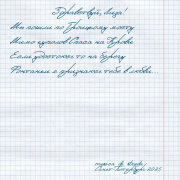 Здравствуй, лиза!
Мы пошли по Троицкому мосту
Мимо куполов Спаса на Крови
Если удостоюсь то на берегу
Фонтанки я признаюсь тебе в любви...
Санкт-Петербург 2025